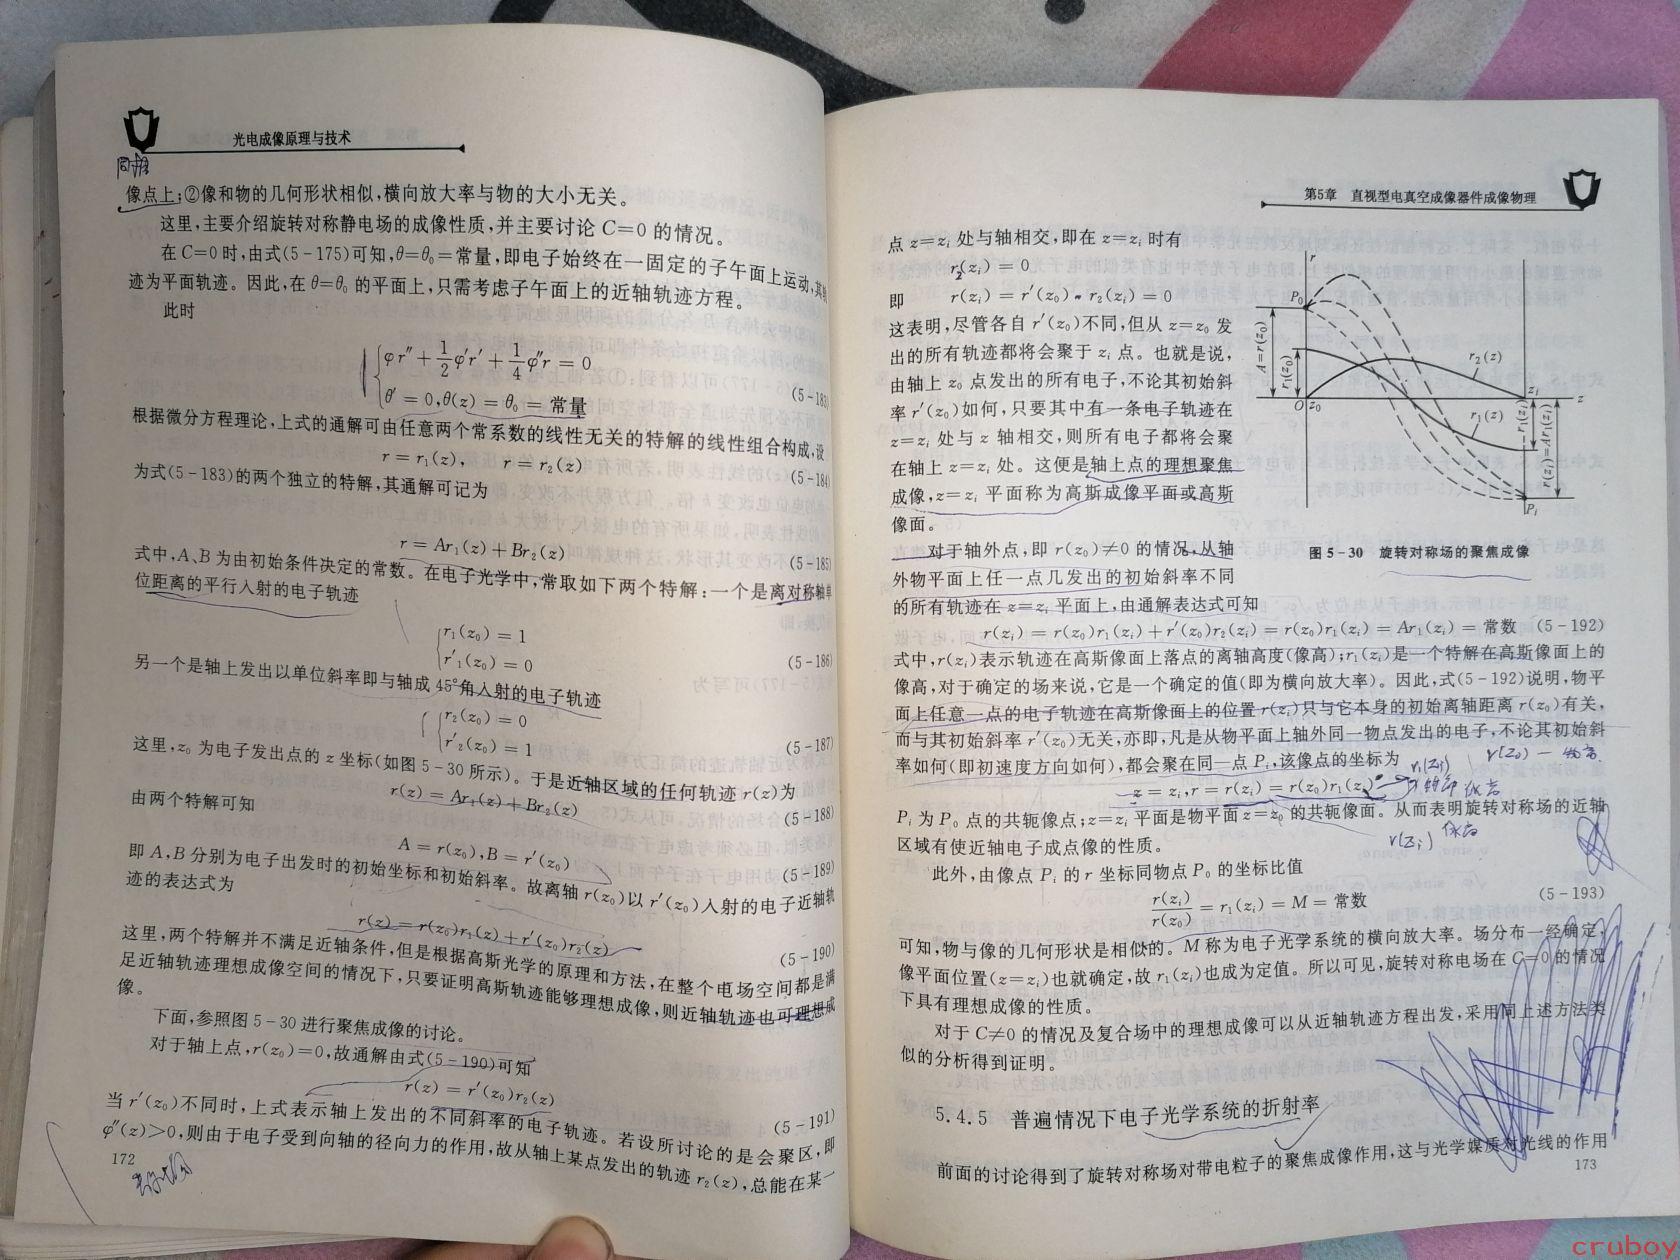 光电成像原理与技术
像点上;②像和物的几何形状相似,横向放大率与物的大小无关。
这里,主要介绍旋转对称静电场的成像性质,并主要讨论 C=0 的情况。
在 C=0 时,由式(5-175)可知,θ=θ₀=常量,即电子始终在一固定的子午面上运动,其轨
迹为平面轨迹。因此,在 θ=θ₀ 的平面上,只需考虑子午面上的近轴轨迹方程。
此时
φr″+1/2φ′r′+1/4φ″r = 0
θ′ = 0,θ(z) = θ₀ = 常量
(5-183)
根据微分方程理论,上式的通解可由任意两个常系数的线性无关的特解的线性组合构成,设
r = r₁(z), r = r₂(z)
(5-184)
为式(5-183)的两个独立的特解,其通解可记为
r = Ar₁(z) + Br₂(z)
(5-185)
式中,A、B 为由初始条件决定的常数。在电子光学中,常取如下两个特解:一个是离对称轴单
位距离的平行入射的电子轨迹
r₁(z₀) = 1
r′₁(z₀) = 0
(5-186)
另一个是轴上发出以单位斜率即与轴成 45°角入射的电子轨迹
r₂(z₀) = 0
r′₂(z₀) = 1
(5-187)
这里,z₀ 为电子发出点的 z 坐标(如图 5-30 所示)。于是近轴区域的任何轨迹 r(z)为
r(z) = Ar₁(z) + Br₂(z)
(5-188)
由两个特解可知
A = r(z₀),B = r′(z₀)
(5-189)
即 A,B 分别为电子出发时的初始坐标和初始斜率。故离轴 r(z₀)以 r′(z₀)入射的电子近轴轨
迹的表达式为
r(z) = r(z₀)r₁(z) + r′(z₀)r₂(z)
(5-190)
这里,两个特解并不满足近轴条件,但是根据高斯光学的原理和方法,在整个电场空间都是满
足近轴轨迹理想成像空间的情况下,只要证明高斯轨迹能够理想成像,则近轴轨迹也可理想成
像。
下面,参照图 5-30 进行聚焦成像的讨论。
对于轴上点,r(z₀)=0,故通解由式(5-190)可知
r(z) = r′(z₀)r₂(z)
(5-191)
当 r′(z₀)不同时,上式表示轴上发出的不同斜率的电子轨迹。若设所讨论的是会聚区,即
φ″(z)>0,则由于电子受到向轴的径向力的作用,故从轴上某点发出的轨迹 r₂(z),总能在某一
172
第5章 直视型电真空成像器件成像物理
点 z=zᵢ 处与轴相交,即在 z=zᵢ 时有
r₂(zᵢ) = 0
即 r(zᵢ) = r′(z₀)·r₂(zᵢ) = 0
这表明,尽管各自 r′(z₀)不同,但从 z=z₀ 发
出的所有轨迹都将会聚于 zᵢ 点。也就是说,
由轴上 z₀ 点发出的所有电子,不论其初始斜
率 r′(z₀)如何,只要其中有一条电子轨迹在
z=zᵢ 处与 z 轴相交,则所有电子都将会聚
在轴上 z=zᵢ 处。这便是轴上点的理想聚焦
成像,z=zᵢ 平面称为高斯成像平面或高斯
像面。
r
P₀
A=r(z₀)
r₁(z₀)
O
z₀
r₂(z)
r₁(z)
zᵢ
z
r₁(zᵢ)
r(zᵢ)=Ar₁(zᵢ)
Pᵢ
图 5-30 旋转对称场的聚焦成像
对于轴外点,即 r(z₀)≠0 的情况,从轴
外物平面上任一点几发出的初始斜率不同
的所有轨迹在 z=zᵢ 平面上,由通解表达式可知
r(zᵢ) = r(z₀)r₁(zᵢ) + r′(z₀)r₂(zᵢ) = r(z₀)r₁(zᵢ) = Ar₁(zᵢ) = 常数 (5-192)
式中,r(zᵢ)表示轨迹在高斯像面上落点的离轴高度(像高);r₁(zᵢ)是一个特解在高斯像面上的
像高,对于确定的场来说,它是一个确定的值(即为横向放大率)。因此,式(5-192)说明,物平
面上任意一点的电子轨迹在高斯像面上的位置 r(zᵢ)只与它本身的初始离轴距离 r(z₀)有关,
而与其初始斜率 r′(z₀)无关,亦即,凡是从物平面上轴外同一物点发出的电子,不论其初始斜
率如何(即初速度方向如何),都会聚在同一点 Pᵢ,该像点的坐标为
r(z₀) — 物高
z = zᵢ,r = r(zᵢ) = r(z₀)r₁(z
Pᵢ 为 P₀ 点的共轭像点;z=zᵢ 平面是物平面 z=z₀ 的共轭像面。从而表明旋转对称场的近轴
区域有使近轴电子成点像的性质。
r(zᵢ) 像高
此外,由像点 Pᵢ 的 r 坐标同物点 P₀ 的坐标比值
r(zᵢ)/r(z₀) = r₁(zᵢ) = M = 常数 (5-193)
可知,物与像的几何形状是相似的。M 称为电子光学系统的横向放大率。场分布一经确定,
像平面位置(z=zᵢ)也就确定,故 r₁(zᵢ)也成为定值。所以可见,旋转对称电场在 C=0 的情况
下具有理想成像的性质。
对于 C≠0 的情况及复合场中的理想成像可以从近轴轨迹方程出发,采用同上述方法类
似的分析得到证明。
5.4.5 普遍情况下电子光学系统的折射率
前面的讨论得到了旋转对称场对带电粒子的聚焦成像作用,这与光学媒质对光线的作用
173
cruboy